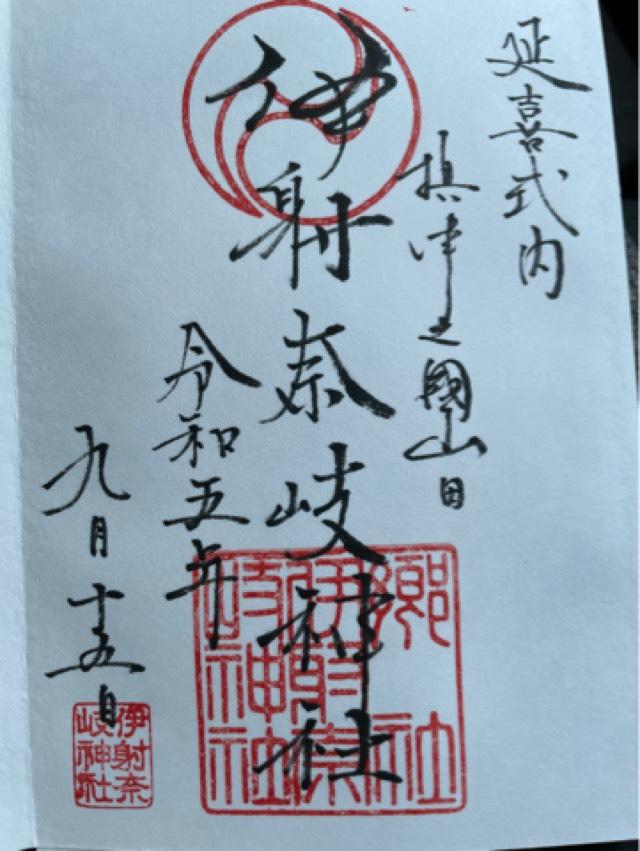 延喜式内
摂津之國山田
伊射奈岐神社
令和五年
九月十五日
郷社
伊射奈
岐神社
伊射奈
岐神社